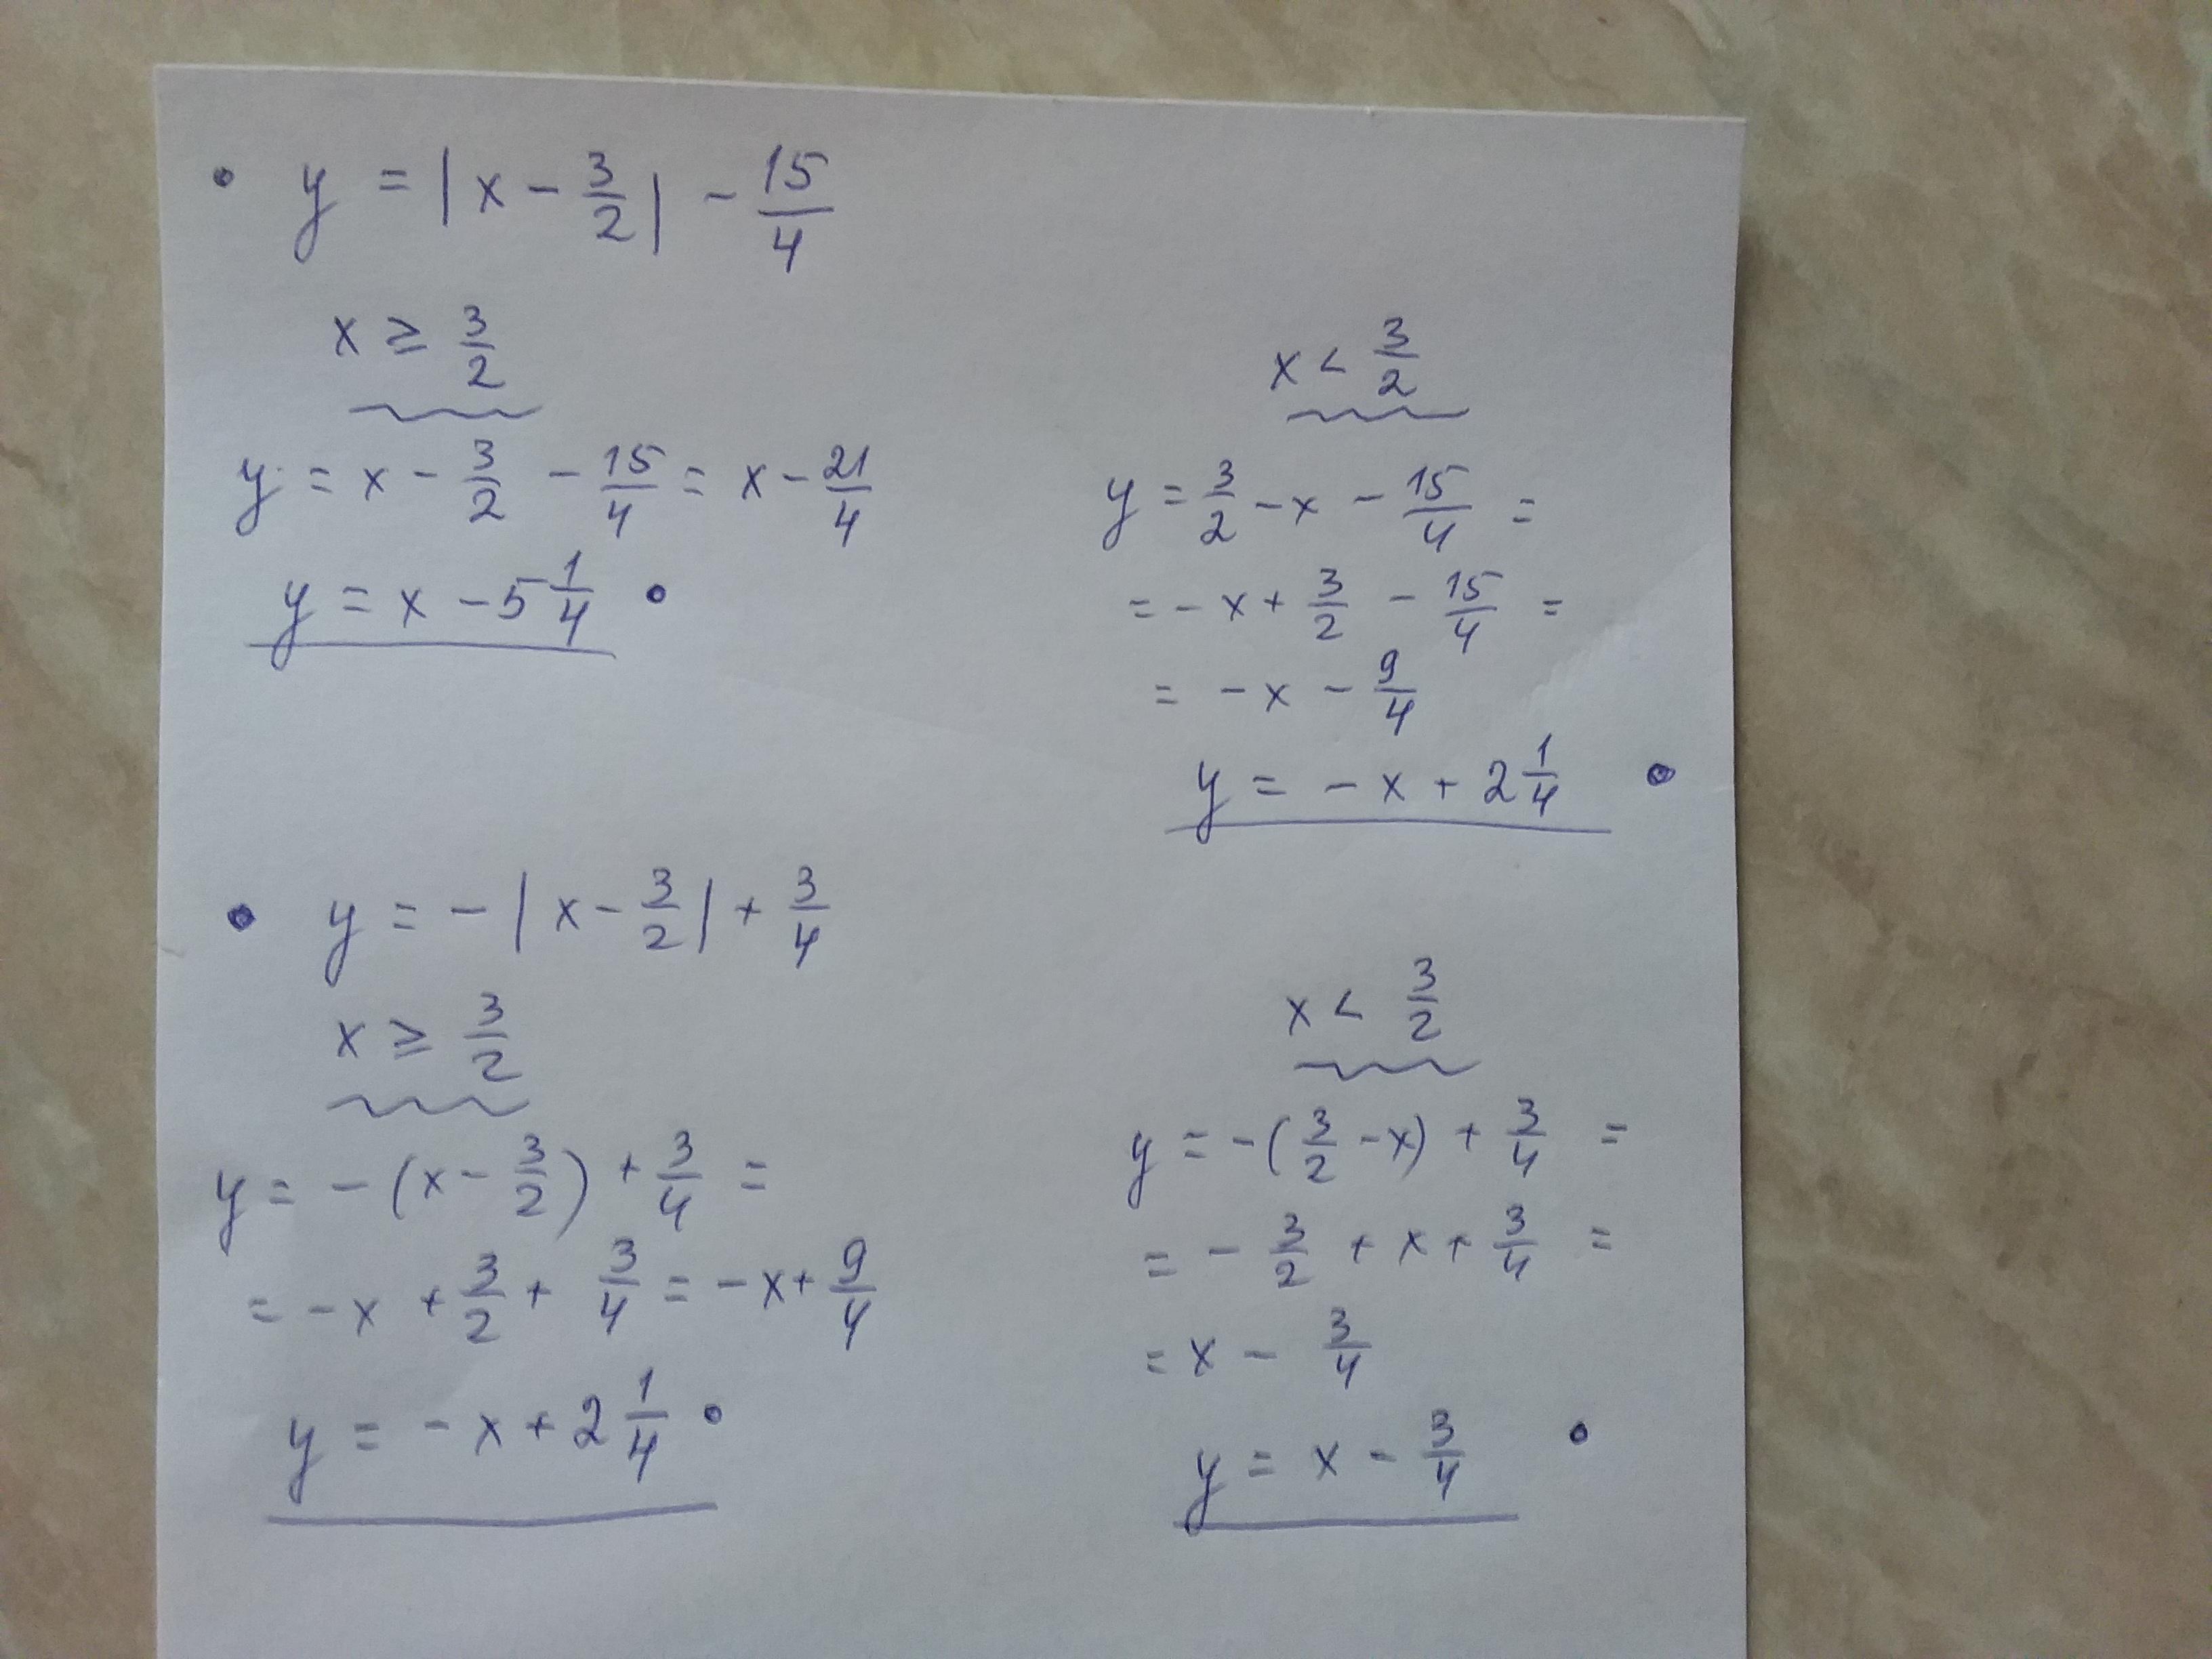 • y = |x - 3/2| - 15/4
x ≥ 3/2
y = x - 3/2 - 15/4 = x - 21/4
y = x - 5 1/4 •
x < 3/2
y = 3/2 - x - 15/4 =
= - x + 3/2 - 15/4 =
= - x - 9/4
y = - x + 2 1/4 •
• y = - |x - 3/2| + 3/4
x ≥ 3/2
y = - (x - 3/2) + 3/4 =
= - x + 3/2 + 3/4 = - x + 9/4
y = - x + 2 1/4 •
x < 3/2
y = - (3/2 - x) + 3/4 =
= - 3/2 + x + 3/4 =
= x - 3/4
y = x - 3/4 •